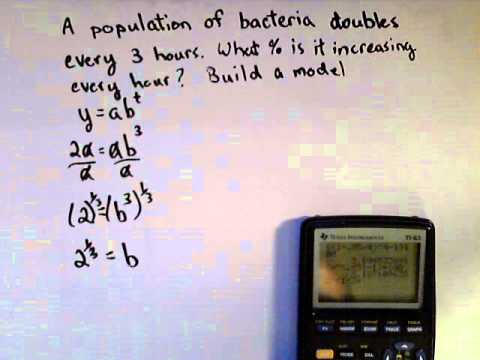 A population of bacteria doubles
every 3 hours. What % is it increasing
every hour? Build a model
y = ab^t
2a/a = ab^3/a
(2)^1/3 = (b^3)^1/3
2^1/3 = b
TEXAS INSTRUMENTS TI-83